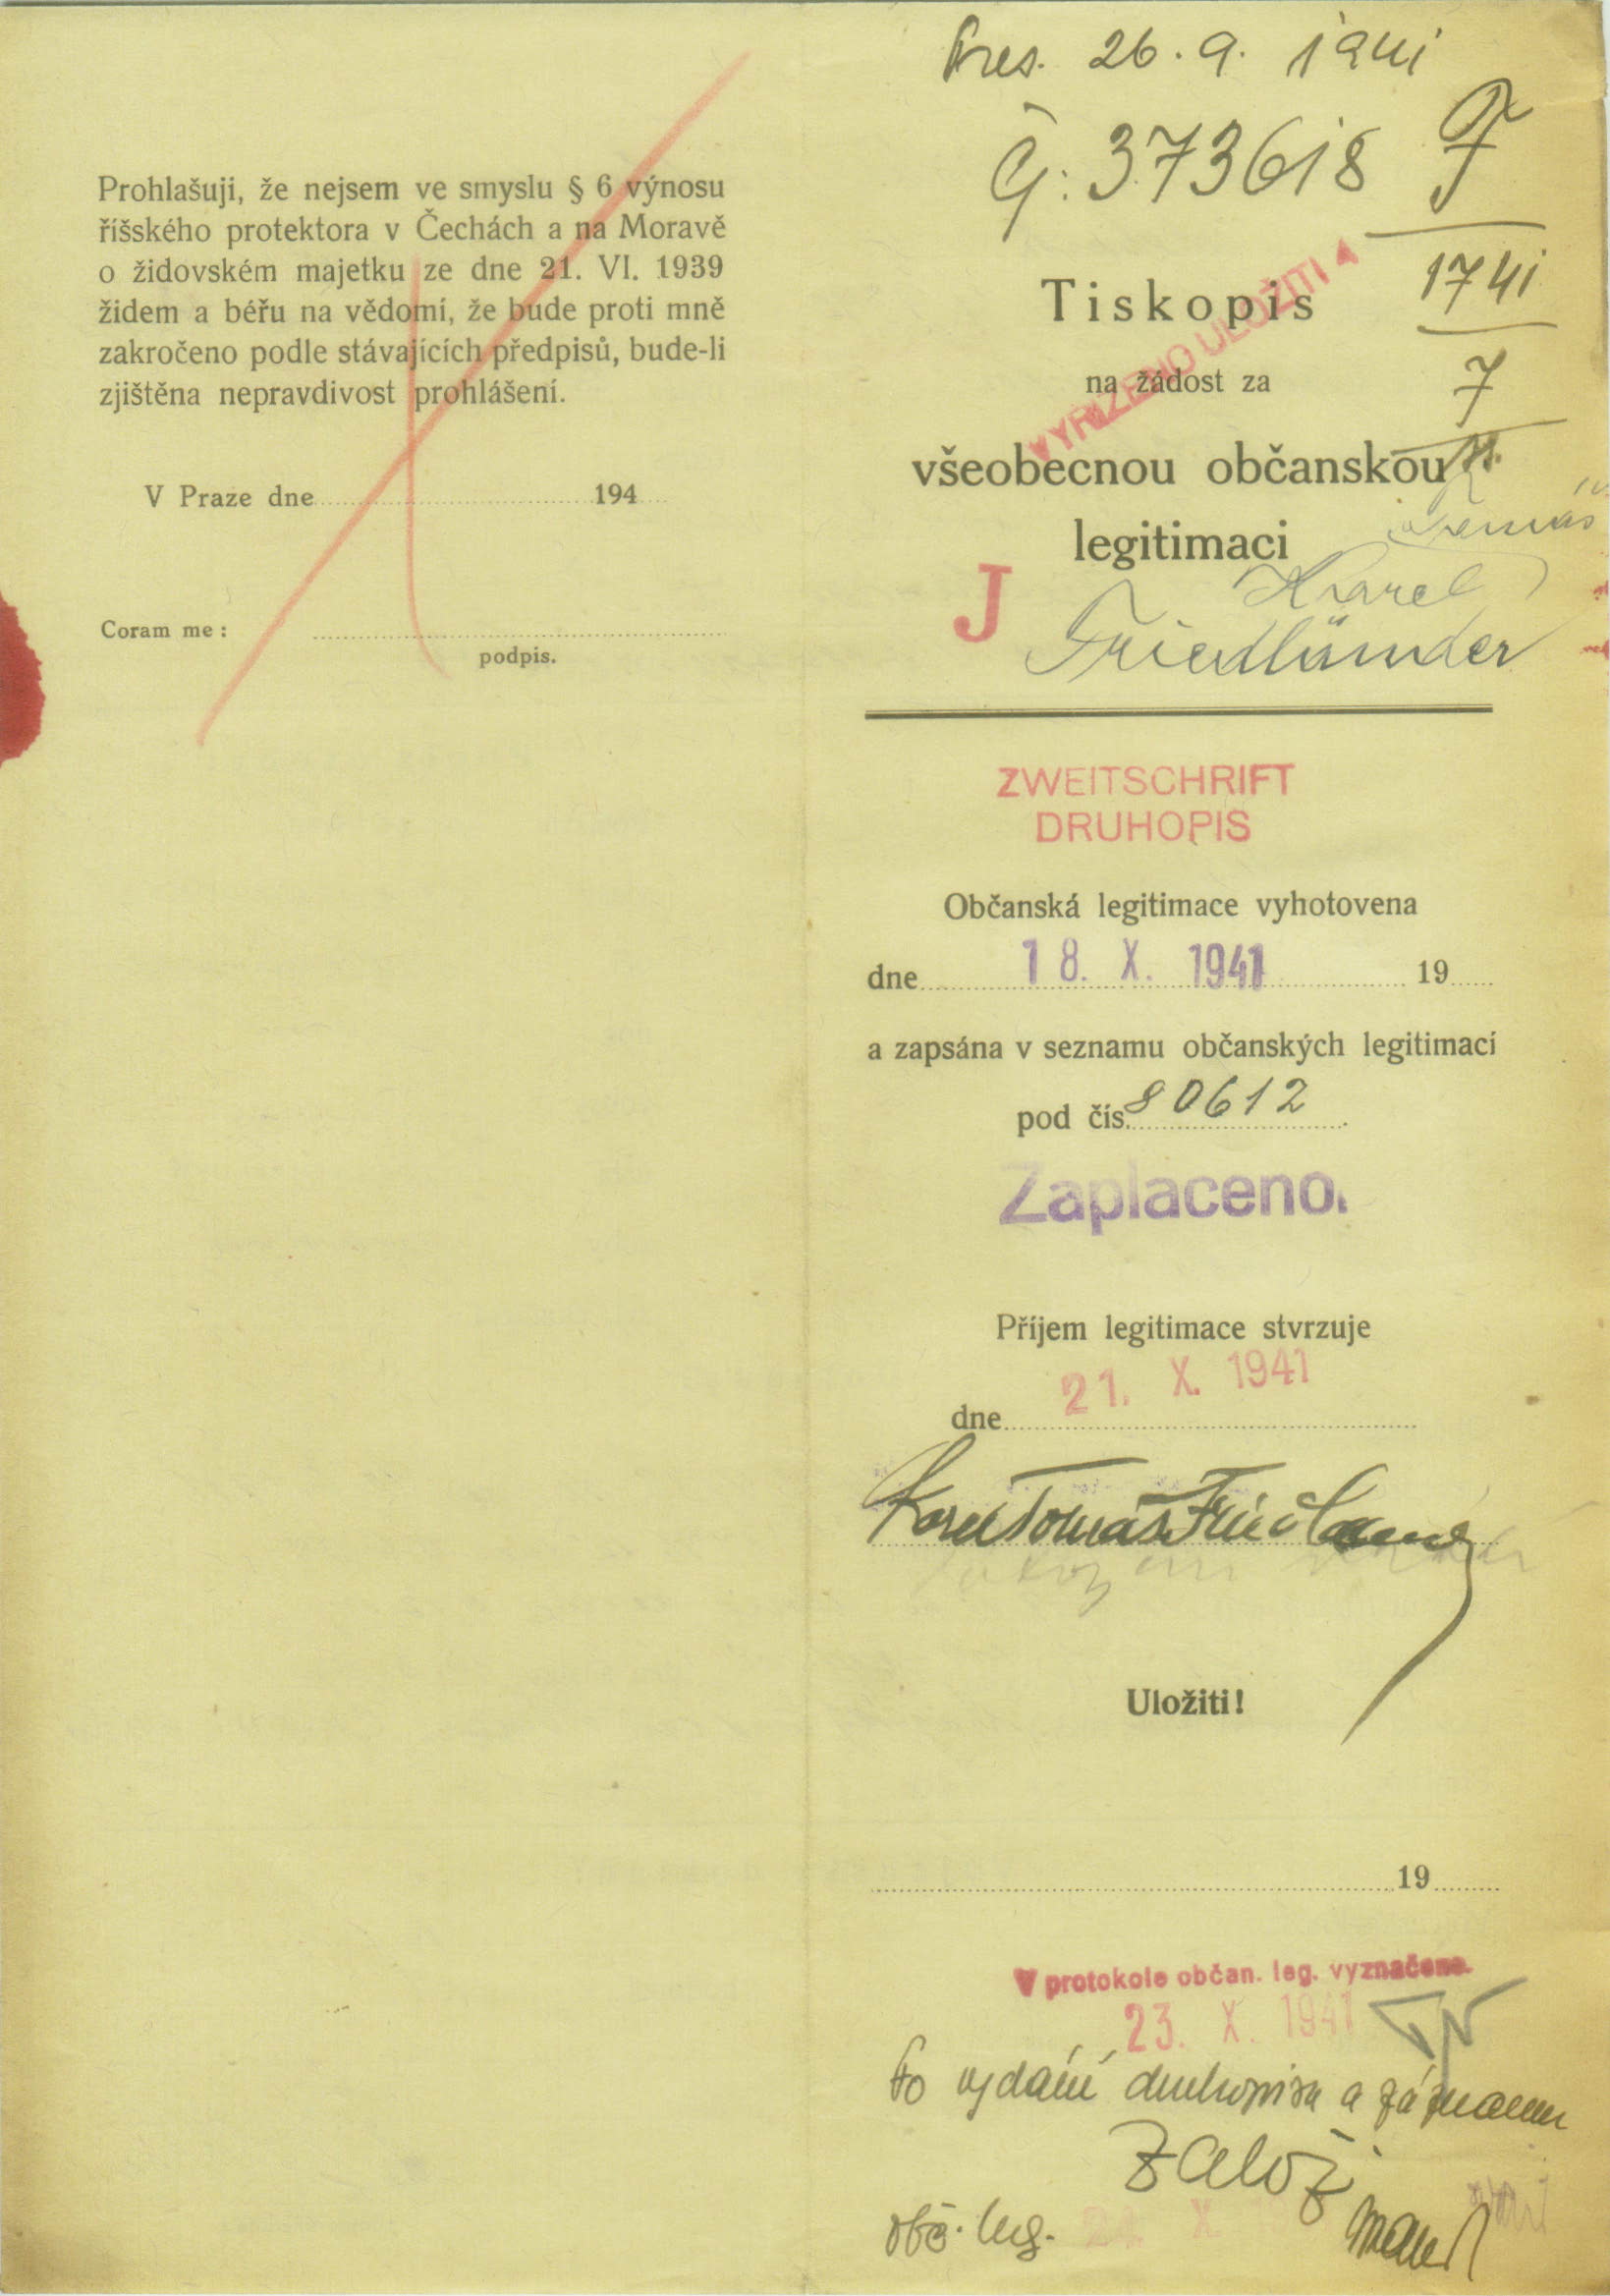 Prohlašuji, že nejsem ve smyslu § 6 výnosu
říšského protektora v Čechách a na Moravě
o židovském majetku ze dne 21. VI. 1939
židem a béřu na vědomí, že bude proti mně
zakročeno podle stávajících předpisů, bude-li
zjištěna nepravdivost prohlášení.
V Praze dne 194
Coram me :
podpis.
Pres. 26. 9. 1941
Čj: 373618 F
1741
7
Tiskopis
na žádost za
VYŘÍZENO ULOŽITI
všeobecnou občanskou
legitimaci
J
Karel
Friedländer
ZWEITSCHRIFT
DRUHOPIS
Občanská legitimace vyhotovena
dne 18. X. 1941 19
a zapsána v seznamu občanských legitimací
pod čís. 80612
Zaplaceno.
Příjem legitimace stvrzuje
21. X. 1941
dne
Karel Tomáš Friedlaender
Uložiti!
19
V protokole občan. leg. vyznačeno.
23. X. 1941
Po vydání druhopisu a záznamu
Založ
obč. leg.